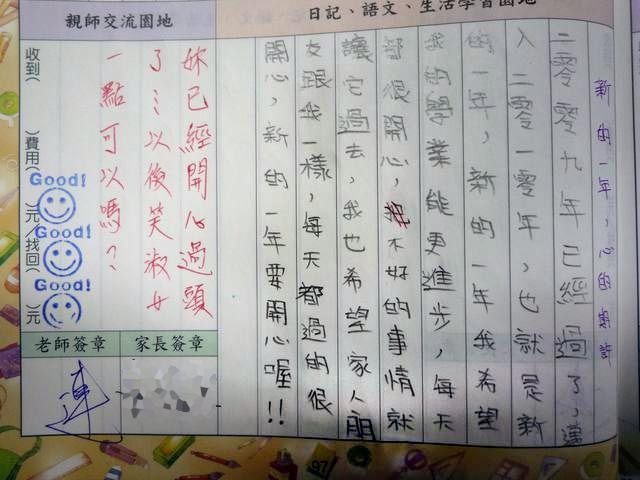 日記、語文、生活學習園地
新的一年,心的寄許
二零零九年已經過了,進
入二零一零年,也就是新
的一年,新的一年我希望
我的學業能更進步,每天
都很開心,把不好的事情就
讓它過去,我也希望家人朋
友跟我一樣,每天都過的很
開心,新的一年要開心喔!!
親師交流園地
妳已經開心過頭
了…以後笑淑女
一點可以嗎?
收到( )費用( )元/找回( )元
Good!
Good!
Good!
家長簽章
老師簽章
連
97